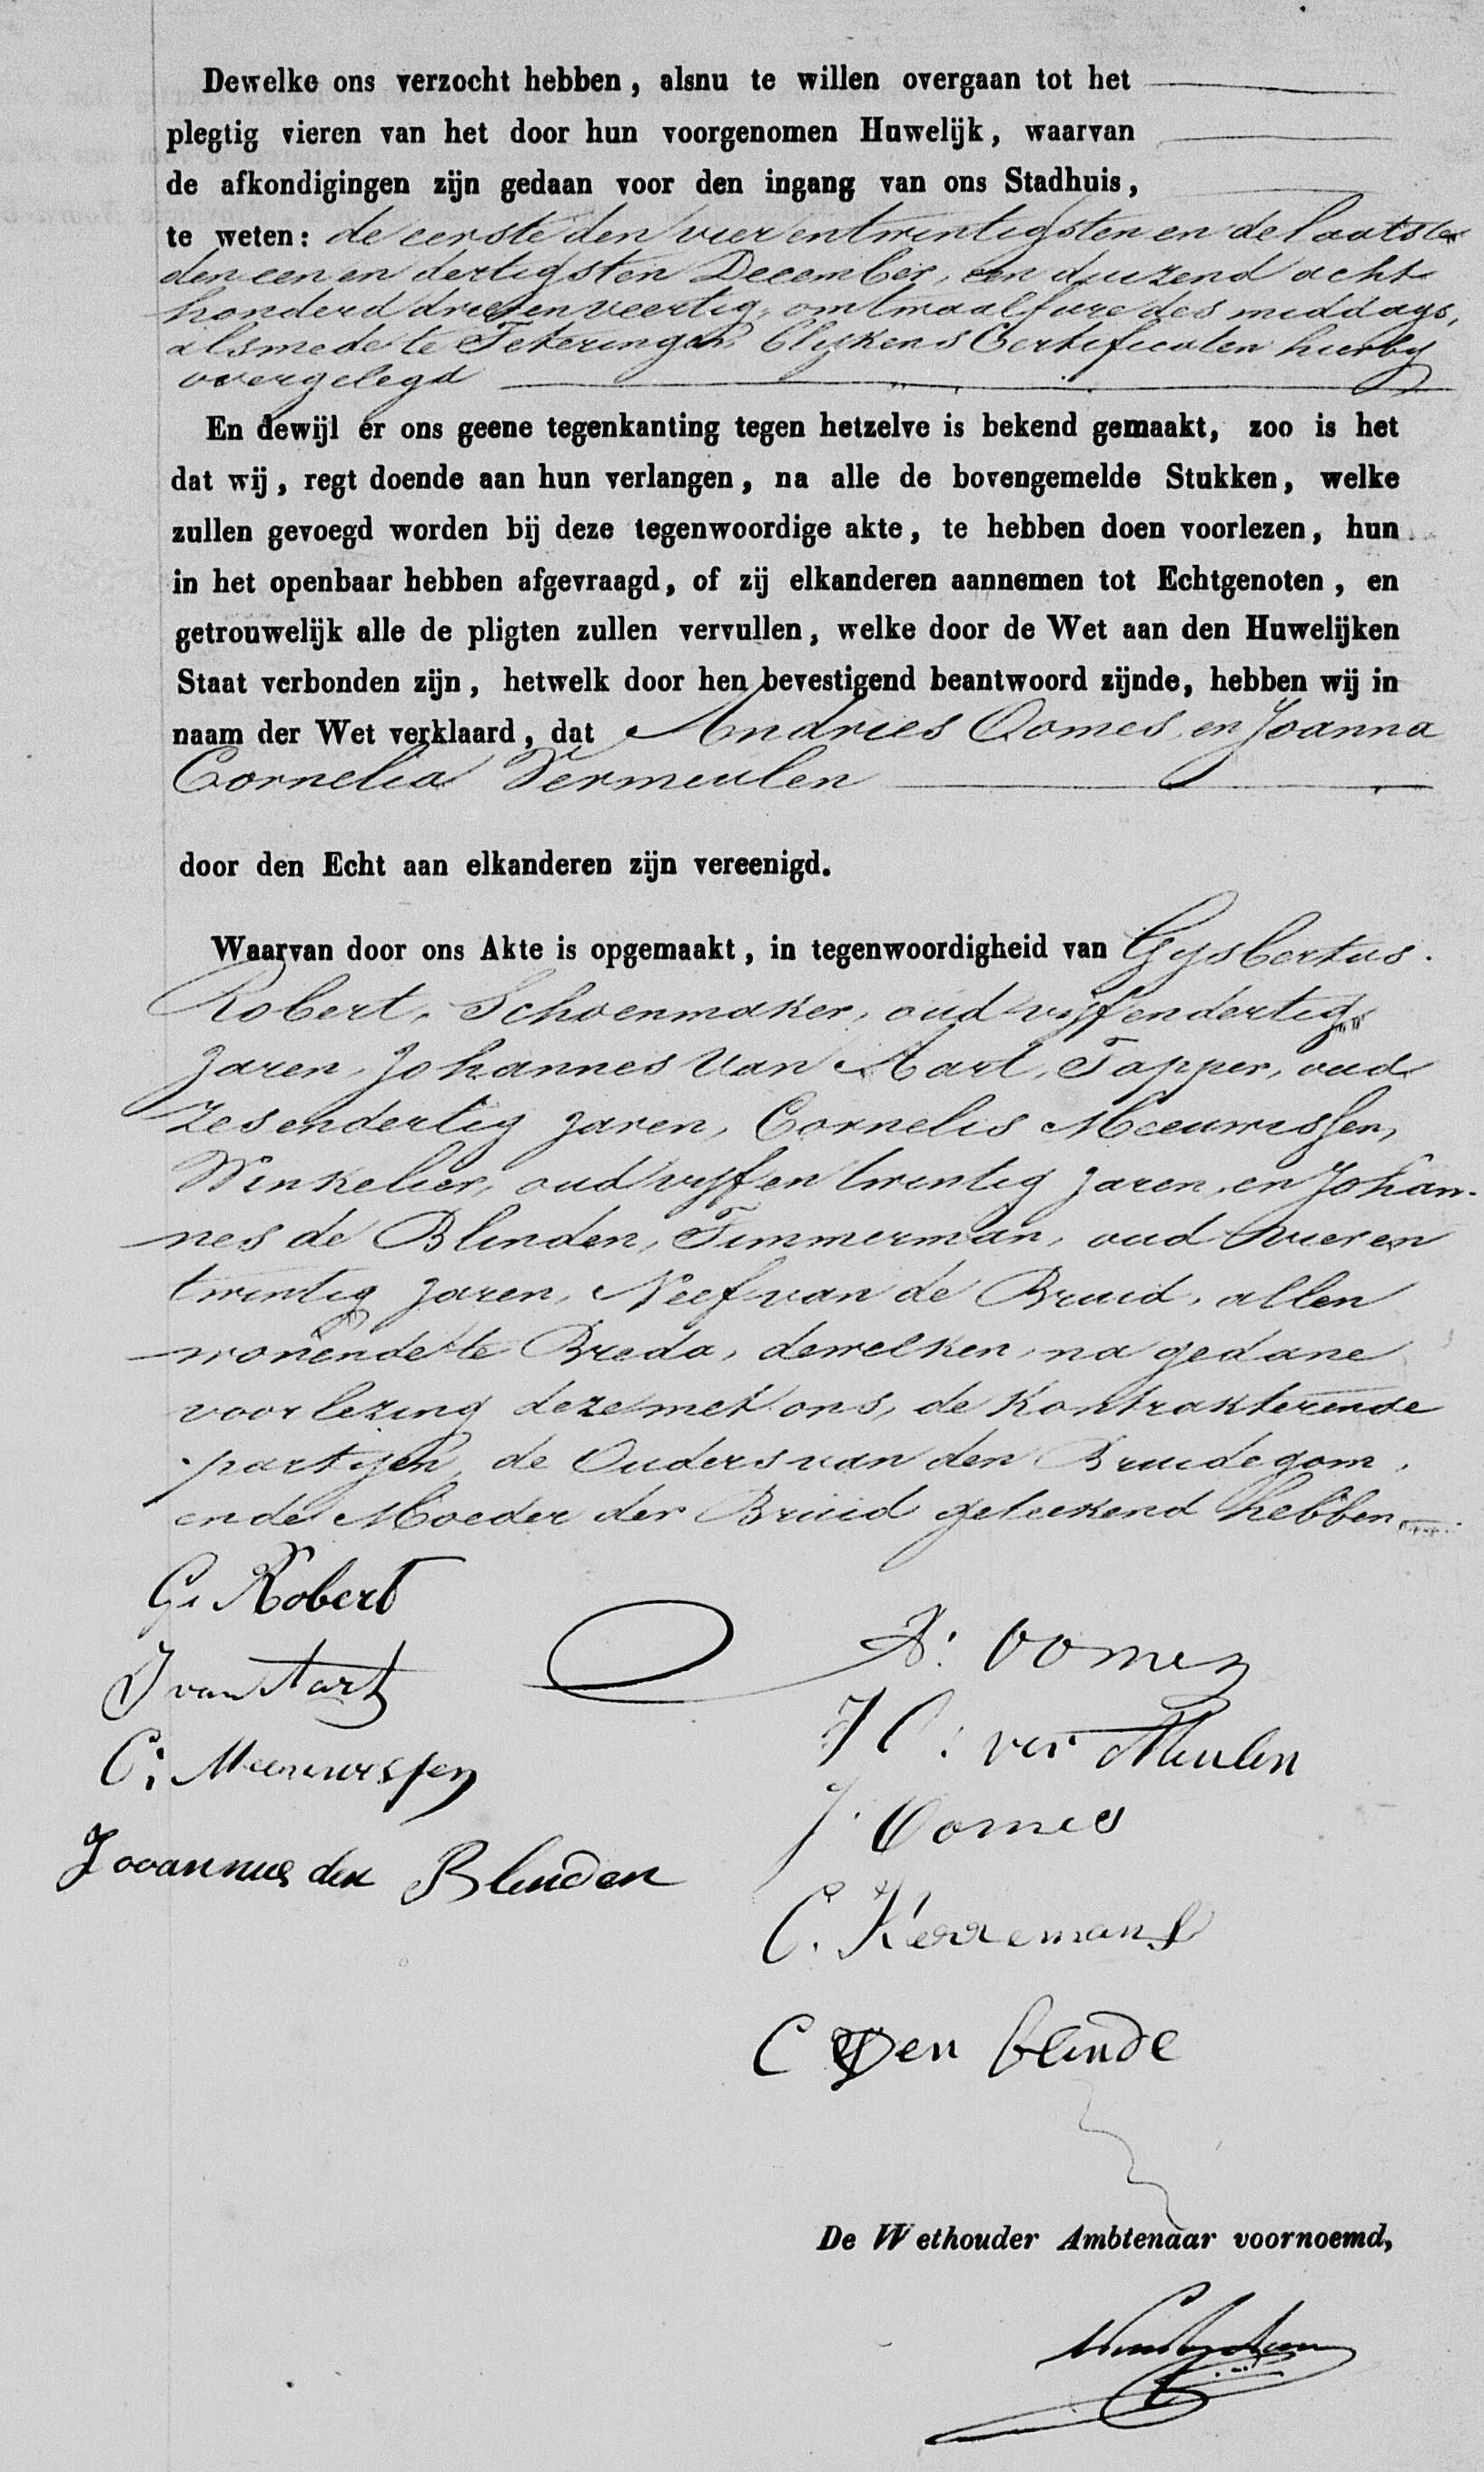 Dewelke ons verzocht hebben, alsnu te willen overgaan tot het
plegtig vieren van het door hun voorgenomen Huwelijk, waarvan
de afkondigingen zijn gedaan voor den ingang van ons Stadhuis,
te weten: de eerste den vier en twintigsten en de laatste
den een en dertigsten December, een duizend acht
honderd drie en veertig, om twaalf ure des middags,
alsmede te Teteringen blijkens Certificaten hierby
overgelegd
En dewijl er ons geene tegenkanting tegen hetzelve is bekend gemaakt, zoo is het
dat wij, regt doende aan hun verlangen, na alle de bovengemelde Stukken, welke
zullen gevoegd worden bij deze tegenwoordige akte, te hebben doen voorlezen, hun
in het openbaar hebben afgevraagd, of zij elkanderen aannemen tot Echtgenoten, en
getrouwelijk alle de pligten zullen vervullen, welke door de Wet aan den Huwelijken
Staat verbonden zijn, hetwelk door hen bevestigend beantwoord zijnde, hebben wij in
naam der Wet verklaard, dat Andries Oomes en Joanna
Cornelia Vermeulen
door den Echt aan elkanderen zijn vereenigd.
Waarvan door ons Akte is opgemaakt, in tegenwoordigheid van Gysbertus
Robert, Schoenmaker, oud vyf en dertig
Jaren, Johannes van Aart, Tapper, oud
Zes en dertig Jaren, Cornelis Meeuwissen,
Winkelier, oud vyf en twintig Jaren, en Johan-
nes de Blinden, Timmerman, oud vier en
twintig Jaren, Neef van de Bruid, allen
wonende te Breda, dewelken, na gedane
voorlezing deze met ons, de Kontrakterende
partyen, de Ouders van den Bruidegom,
en de Moeder der Bruid geteekend hebben.
G. Robert
J van Aart
C: Meeuwissen
Jooannus den Blinden
A: oomes
J C: ver Meulen
J. Oomes
C. Kerremans
C Den blinde
De Wethouder Ambtenaar voornoemd,